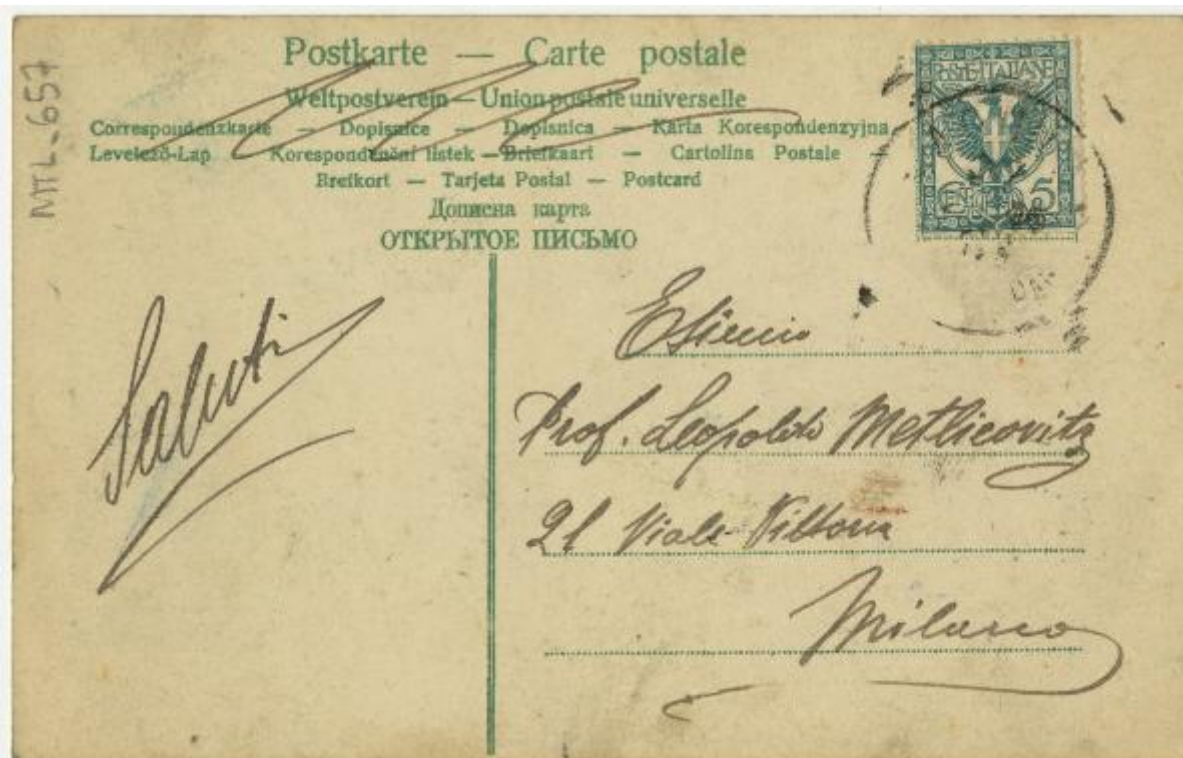 Postkarte — Carte postale
Weltpostverein — Union postale universelle
Correspondenzkarte — Dopisnice — Dopisnica — Karta Korespondenzyjna
Levelező-Lap — Korespondenční listek — Briefkaart — Cartolina Postale —
Brefkort — Tarjeta Postal — Postcard
Дописна карта
ОТКРЫТОЕ ПИСЬМО
POSTE·ITALIANE
5
Saluti
Prof. Leopoldo Metlicovitz
21 Viale Vittoria
Milano